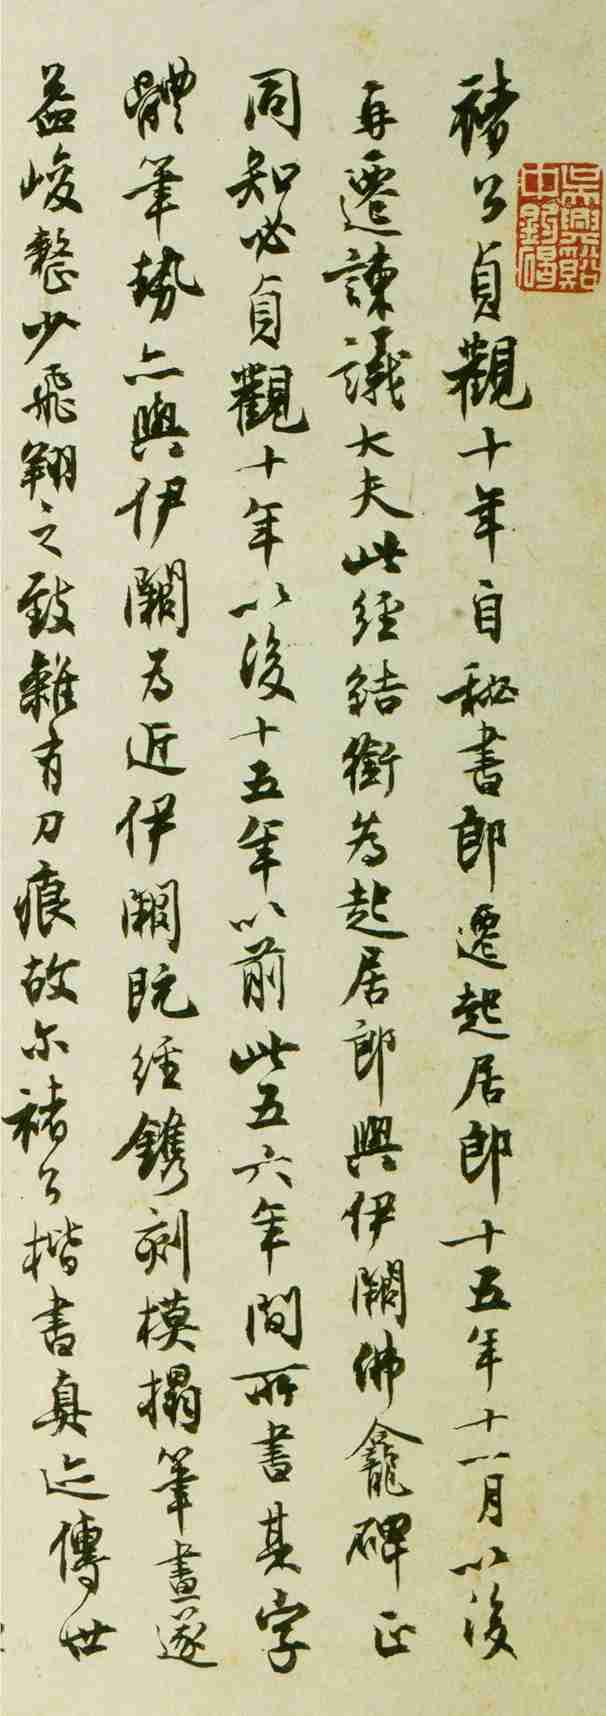 褚公貞觀十年自秘書郎遷起居郎十五年十一月以後
再遷諫議大夫此經結銜為起居郎與伊闕佛龕碑正
同知必貞觀十年以後十五年以前此五六年間所書其字
體筆勢亦與伊闕為近伊闕既經鐫刻模搨筆畫遂
益峻整少飛翔之致雜有刀痕故尔褚公楷書真迹傳世